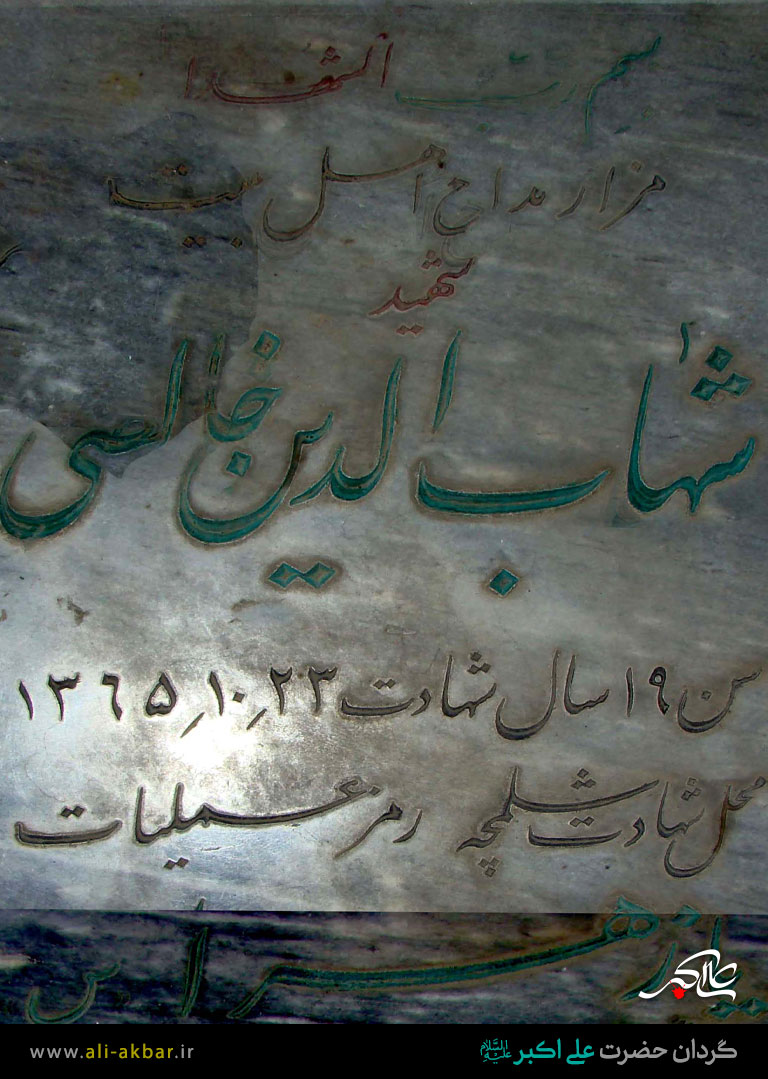 بسم رب الشهدا
مزار مداح اهل بیت
شهید
شهاب الدین خالصی
سن ۱۹ سال شهادت ۲۳٫۱۰٫۱۳۶۵
محل شهادت شلمچه رمز عملیات
یا زهرا س
علی اکبر
گردان حضرت علی اکبر علیه السلام
www.ali-akbar.ir